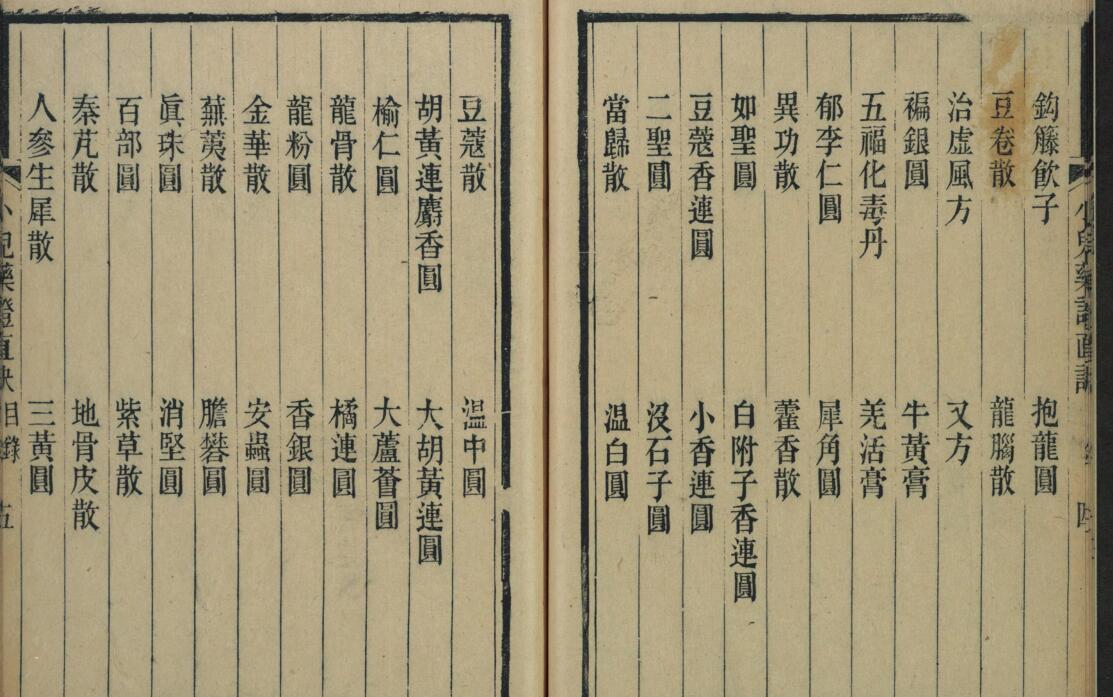 鈎籐飲子 抱龍圓
豆卷散 龍腦散
治虛風方 又方
褊銀圓 牛黃膏
五福化毒丹 羌活膏
郁李仁圓 犀角圓
異功散 藿香散
如聖圓 白附子香連圓
豆蔻香連圓 小香連圓
二聖圓 沒石子圓
當歸散 温白圓
豆蔻散 温中圓
胡黃連麝香圓 大胡黃連圓
榆仁圓 大蘆薈圓
龍骨散 橘連圓
龍粉圓 香銀圓
金華散 安蟲圓
蕪荑散 膽礬圓
眞珠圓 消堅圓
百部圓 紫草散
秦艽散 地骨皮散
人參生犀散 三黃圓
小兒藥證直訣 目錄 五